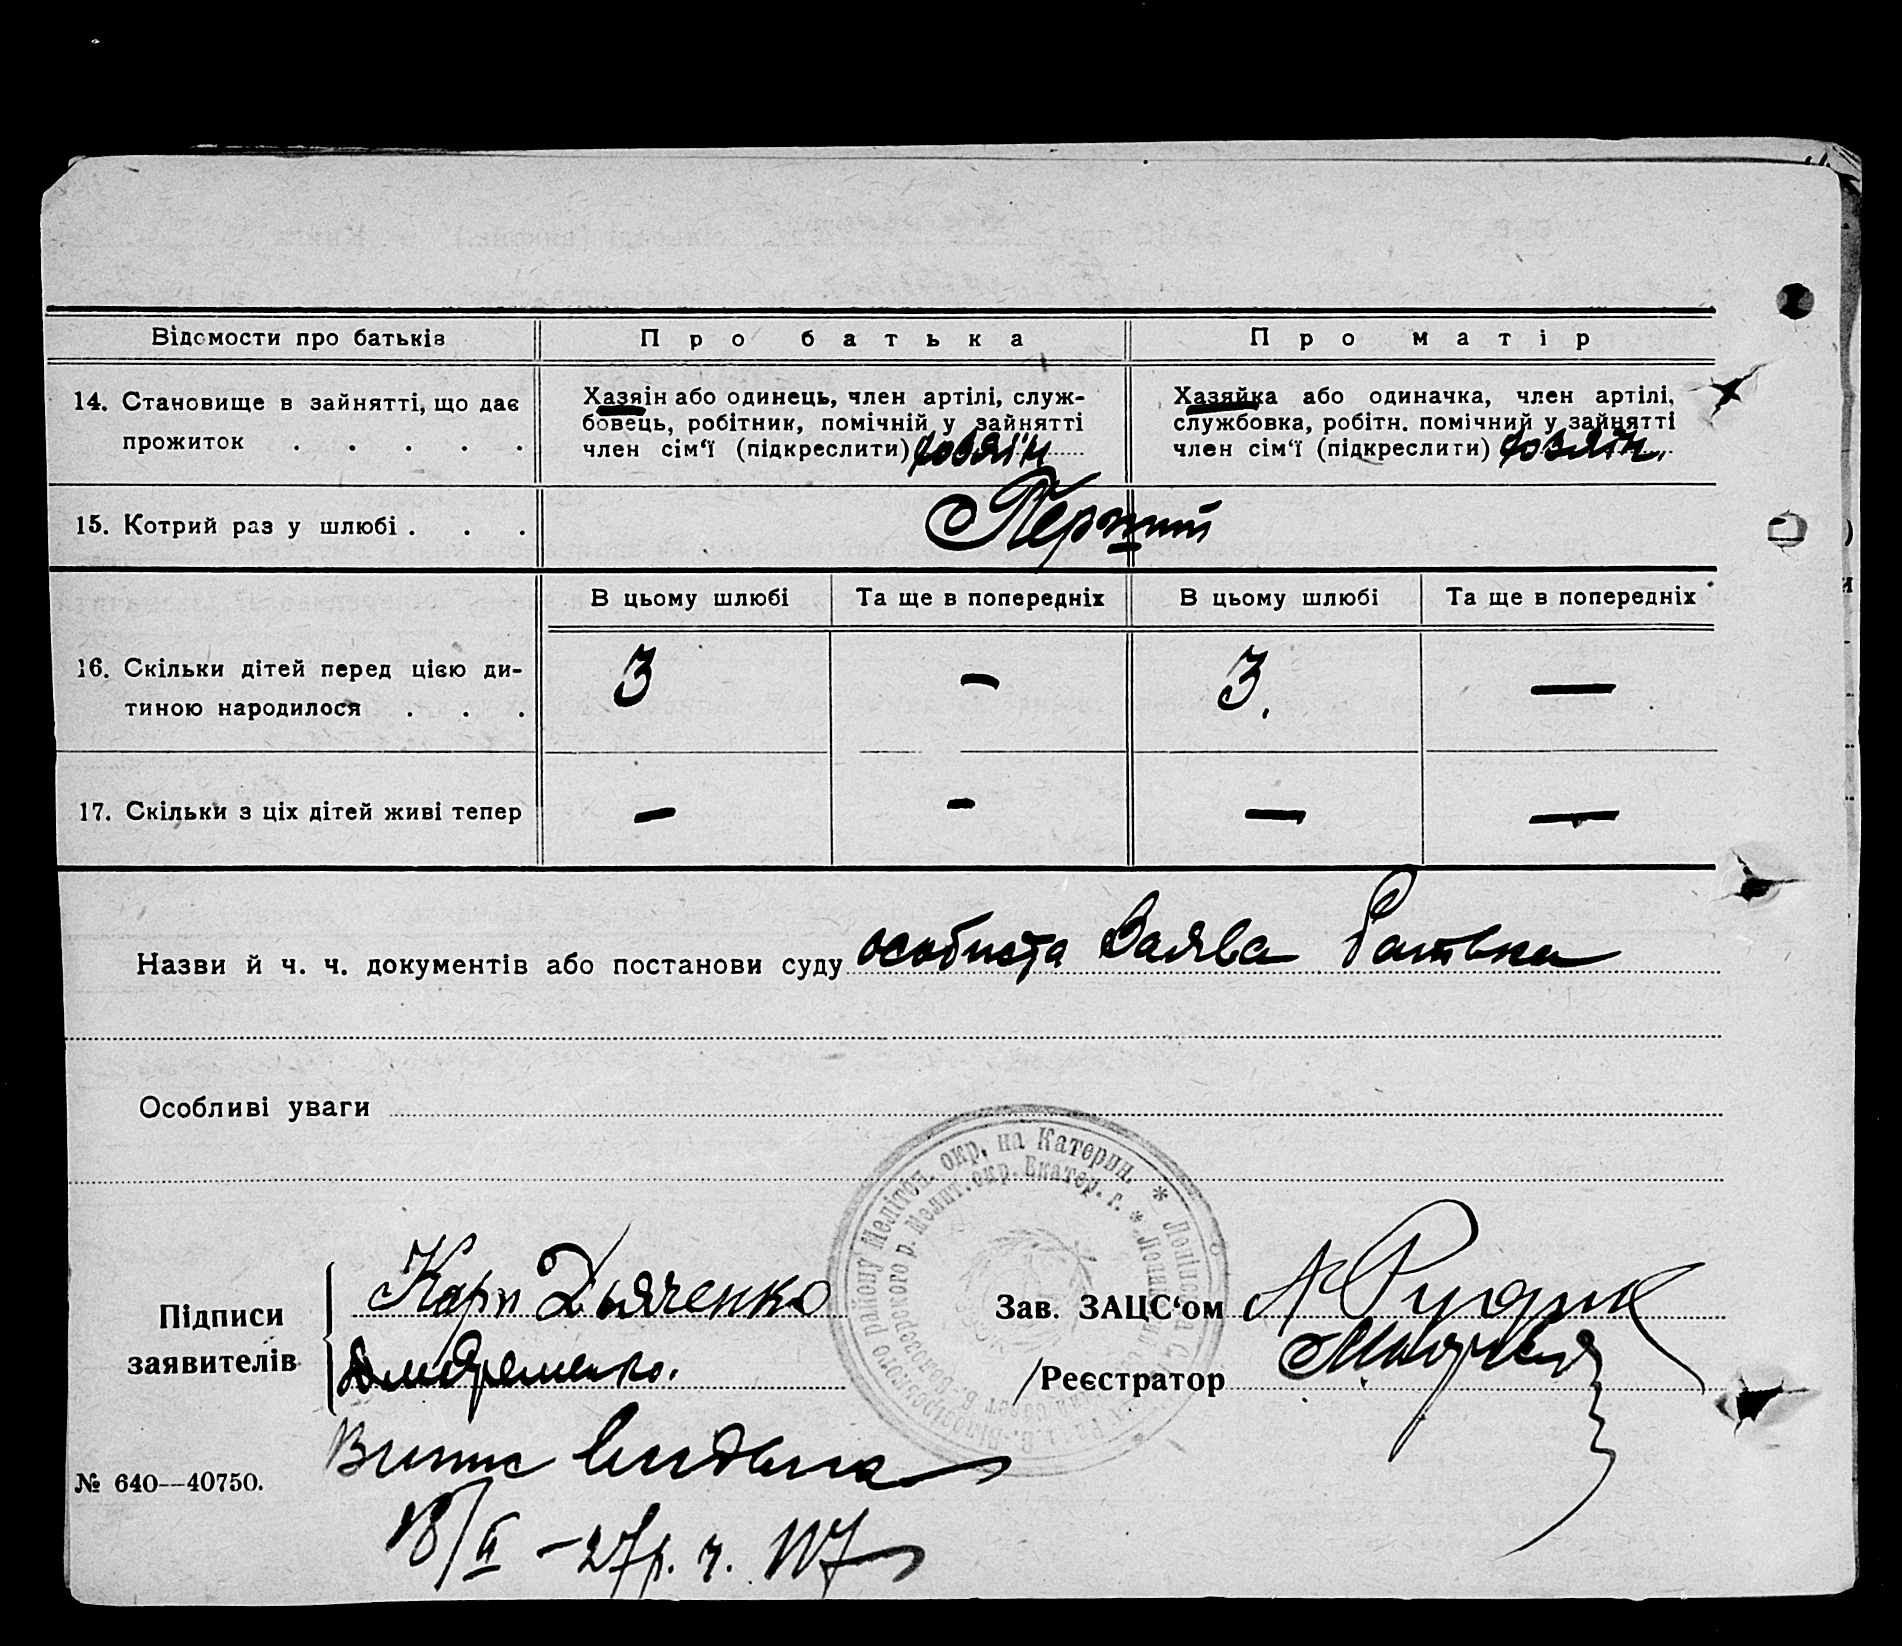 Відомости про батьків
Про батька
Про матір
14. Становище в зайнятті, що дає
прожиток . . . . .
Хазяін або одинець, член артілі, служ-
бовець, робітник, помічній у зайнятті
член сім'ї (підкреслити) хозяїн
Хазяйка або одиначка, член артілі,
службовка, робітн. помічний у зайнятті
член сім'ї (підкреслити) хозяїн.
15. Котрий раз у шлюбі . . .
Перший
В цьому шлюбі
Та ще в попередніх
В цьому шлюбі
Та ще в попередніх
16. Скільки дітей перед цією ди-
тиною народилося . . .
3
—
3.
—
17. Скільки з ціх дітей живі тепер
—
-
—
—
Назви й ч. ч. документів або постанови суду особиста Заява батька
Особливі уваги
Мелітоп. окр. на Катерин. * Ленінська
Мелит. окр. Екатер. г. *
Підписи
заявителів
Карп Дьяченко
Зав. ЗАЦС'ом А Рудик
/Реєстратор
Випис видана
№ 640—40750.
18/II – 27 р. ч. 117